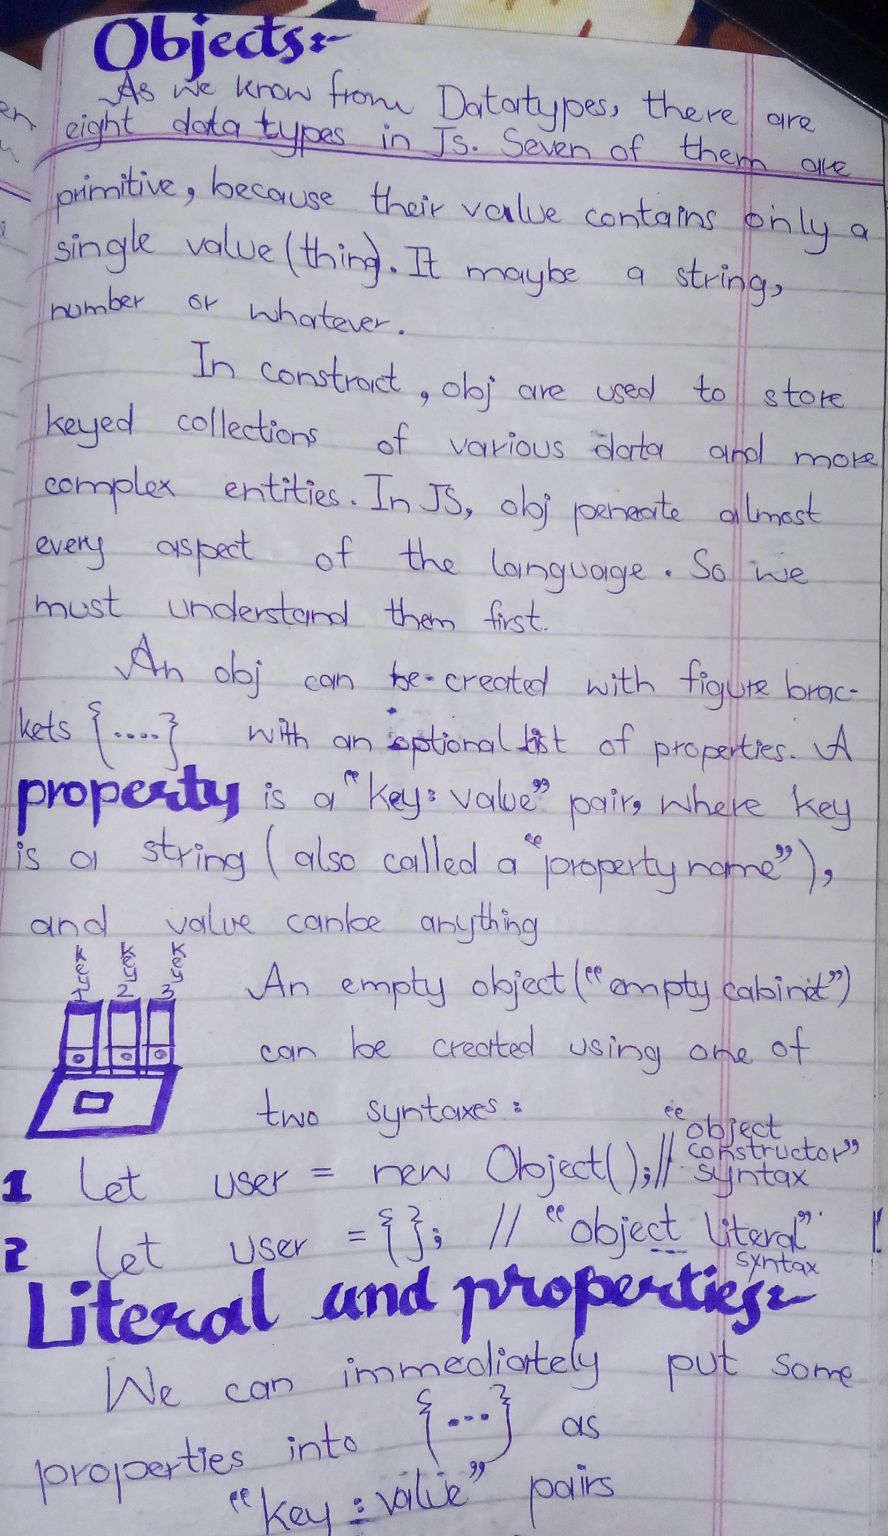 Objects:-
As we know from Datatypes, there are
eight data types in Js. Seven of them are
primitive, because their value contains only a
single value (thing). It maybe a string,
number or whatever.
In constract, obj are used to store
keyed collections of various data and more
complex entities. In JS, obj peneate almost
every aspect of the language. So we
must understand them first.
An obj can be created with figure brac-
kets {....} with an optional list of properties. A
property is a "key: value" pair, where key
is a string (also called a "property name"),
and value canbe anything
key 1 key 2 key 3
An empty object ("empty cabinet")
can be created using one of
two syntaxes:
1 let user = new Object(); // "object constructor" syntax
2 let user = {}; // "object literal" syntax
Literal and properties:-
We can immediately put some
properties into {...} as
"key : value" pairs